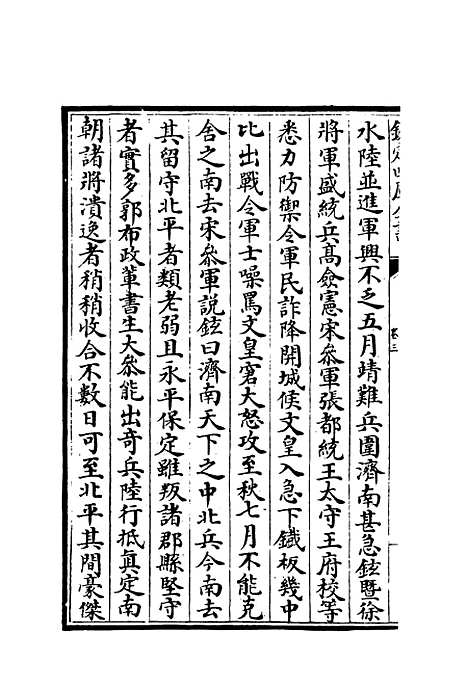 欽定四庫全書
卷三
水陸並進軍興不乏五月靖難兵圍濟南甚急鉉暨徐
將軍盛統兵高僉憲宋叅軍張都統王太守王府校等
悉力防禦令軍民詐降開城候文皇入急下鐵板幾中
比出戰令軍士噪罵文皇窘大怒攻至秋七月不能克
舍之南去宋叅軍説鉉曰濟南天下之中北兵今南去
其留守北平者類老弱且永平保定雖叛諸郡縣堅守
者實多郭布政軰書生大叅能出奇兵陸行抵真定南
朝諸將潰逸者稍稍收合不數日可至北平其間豪傑